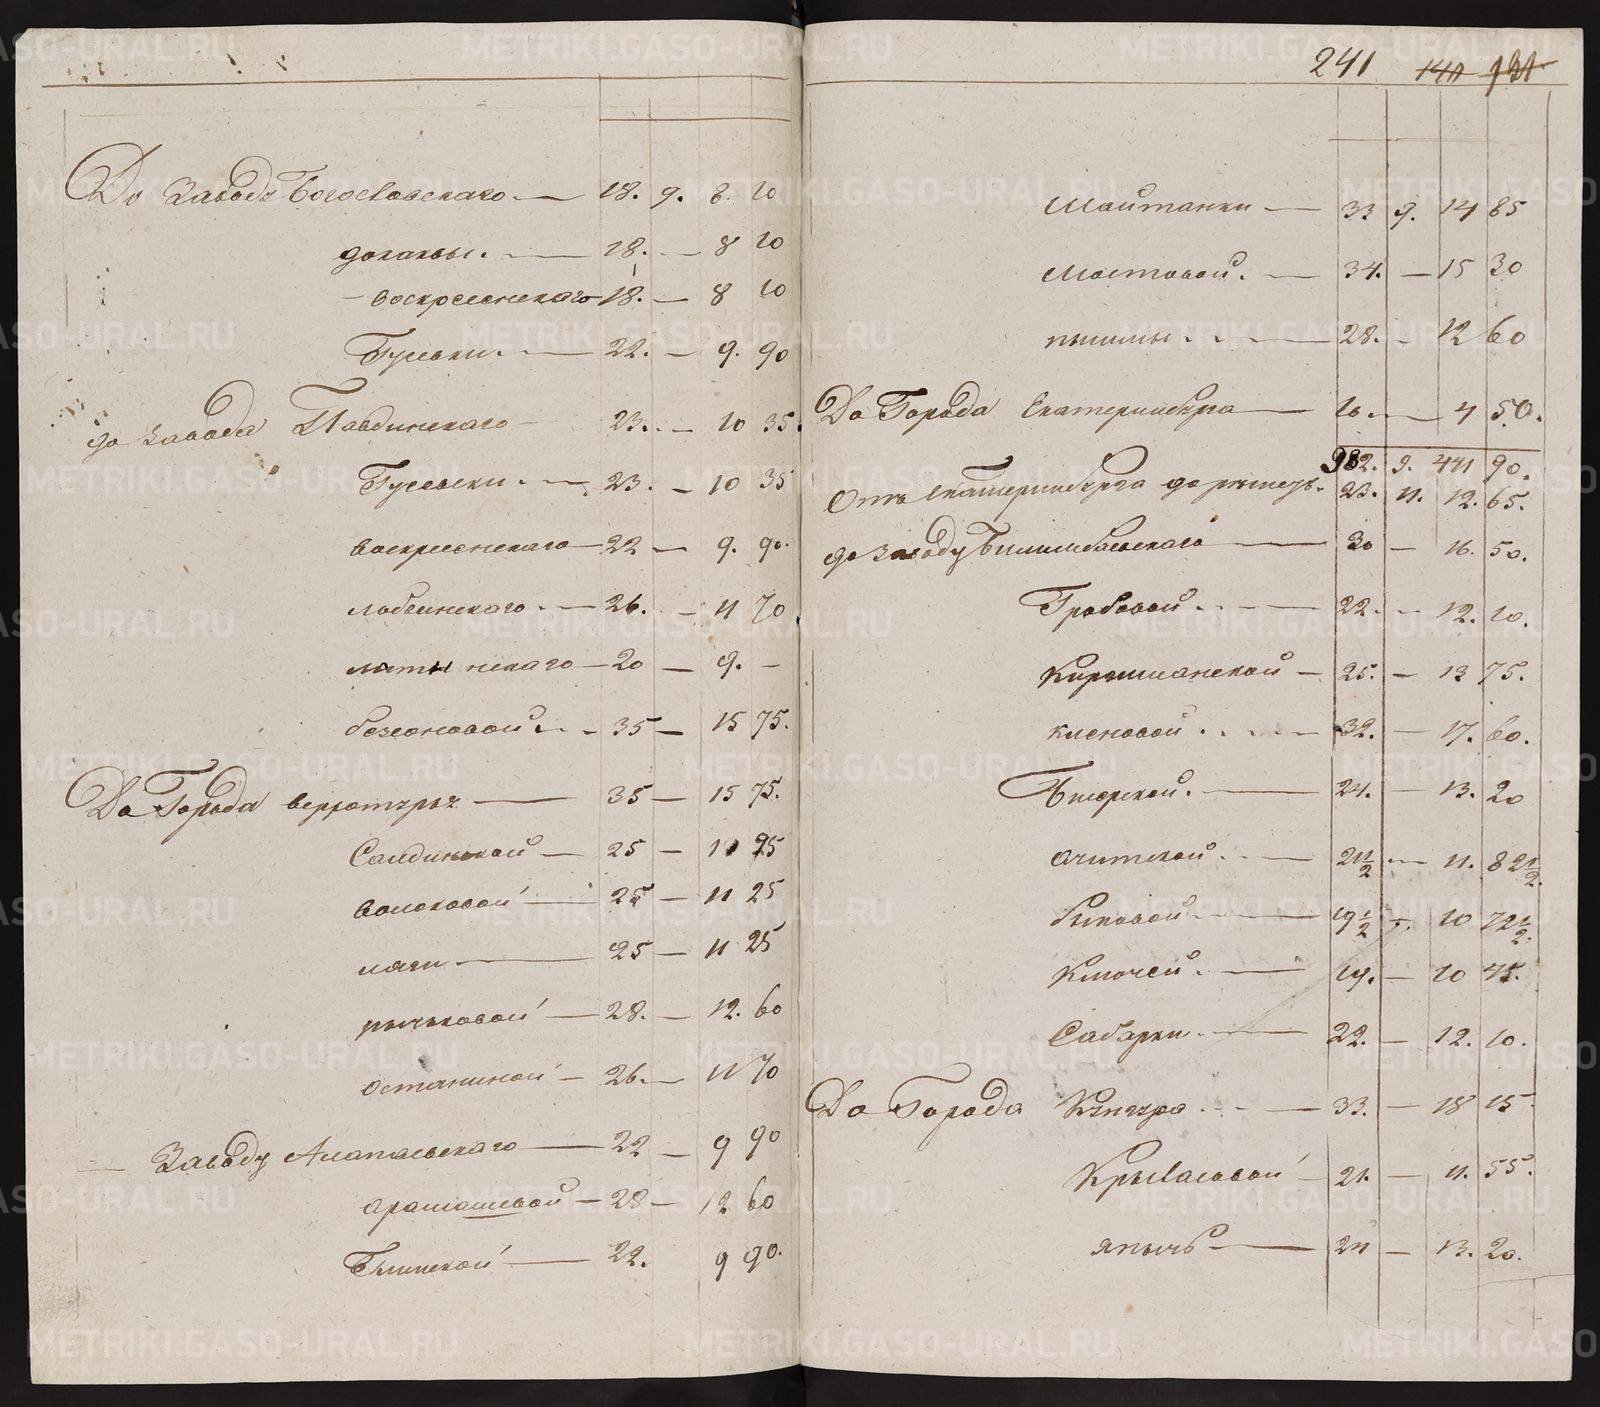 До Заводъ Богословскаго — 18. 9. 8. 10
— 18. — 8 10
— воскресенскаго 18. — 8 10
— 22. — 9. 90
до Завода Павдинскаго — 23. — 10 35.
— 23. — 10 35
воскресенскаго — 22 — 9. 90.
лобвинскаго. — 26. — 11 70
лятинскаго — 20 — 9. —
безсоновой. — 35 — 15 75.
До Города верхотурья — 35 — 15 75.
Салдинской — 25 — 11 25
волоковой — 25 — 11 25
— 25 — 11 25
— 28. — 12. 60
останиной — 26. — 11 70
— Заводу Алапаевскаго — 22 — 9 90
арамашевой — 28 — 12 60
Глинской — 22. 9 90.
241 141 131
Шайтанки — 33 9. 14 85
Мостовой. — 34. — 15 30
пышмы — 28. — 12 60
До Города Екатеринбурга — 10. — 4 50.
982. 9. 441 90.
Отъ Екатеринбурга до решетъ. 23. 11. 12. 65.
до Заводу Билимбаевскаго — 30 — 16. 50.
Гробовой. — 22. — 12. 10.
Киргишанской — 25. — 13 75.
кленовой — 32. — 17. 60.
Бисерской. — 24. — 13. 20
Ачитской. — 21 1/2 — 11. 82 1/2.
быковой — 19 1/2 — 10 72 1/2.
Ключей. — 19. — 10 45.
Сабарки — 22. — 12. 10.
До Города Кунгура — 33. — 18 15
Крыласовой — 21. — 11. 55.
янычь — 24 — 13. 20.
METRIKI.GASO-URAL.RU